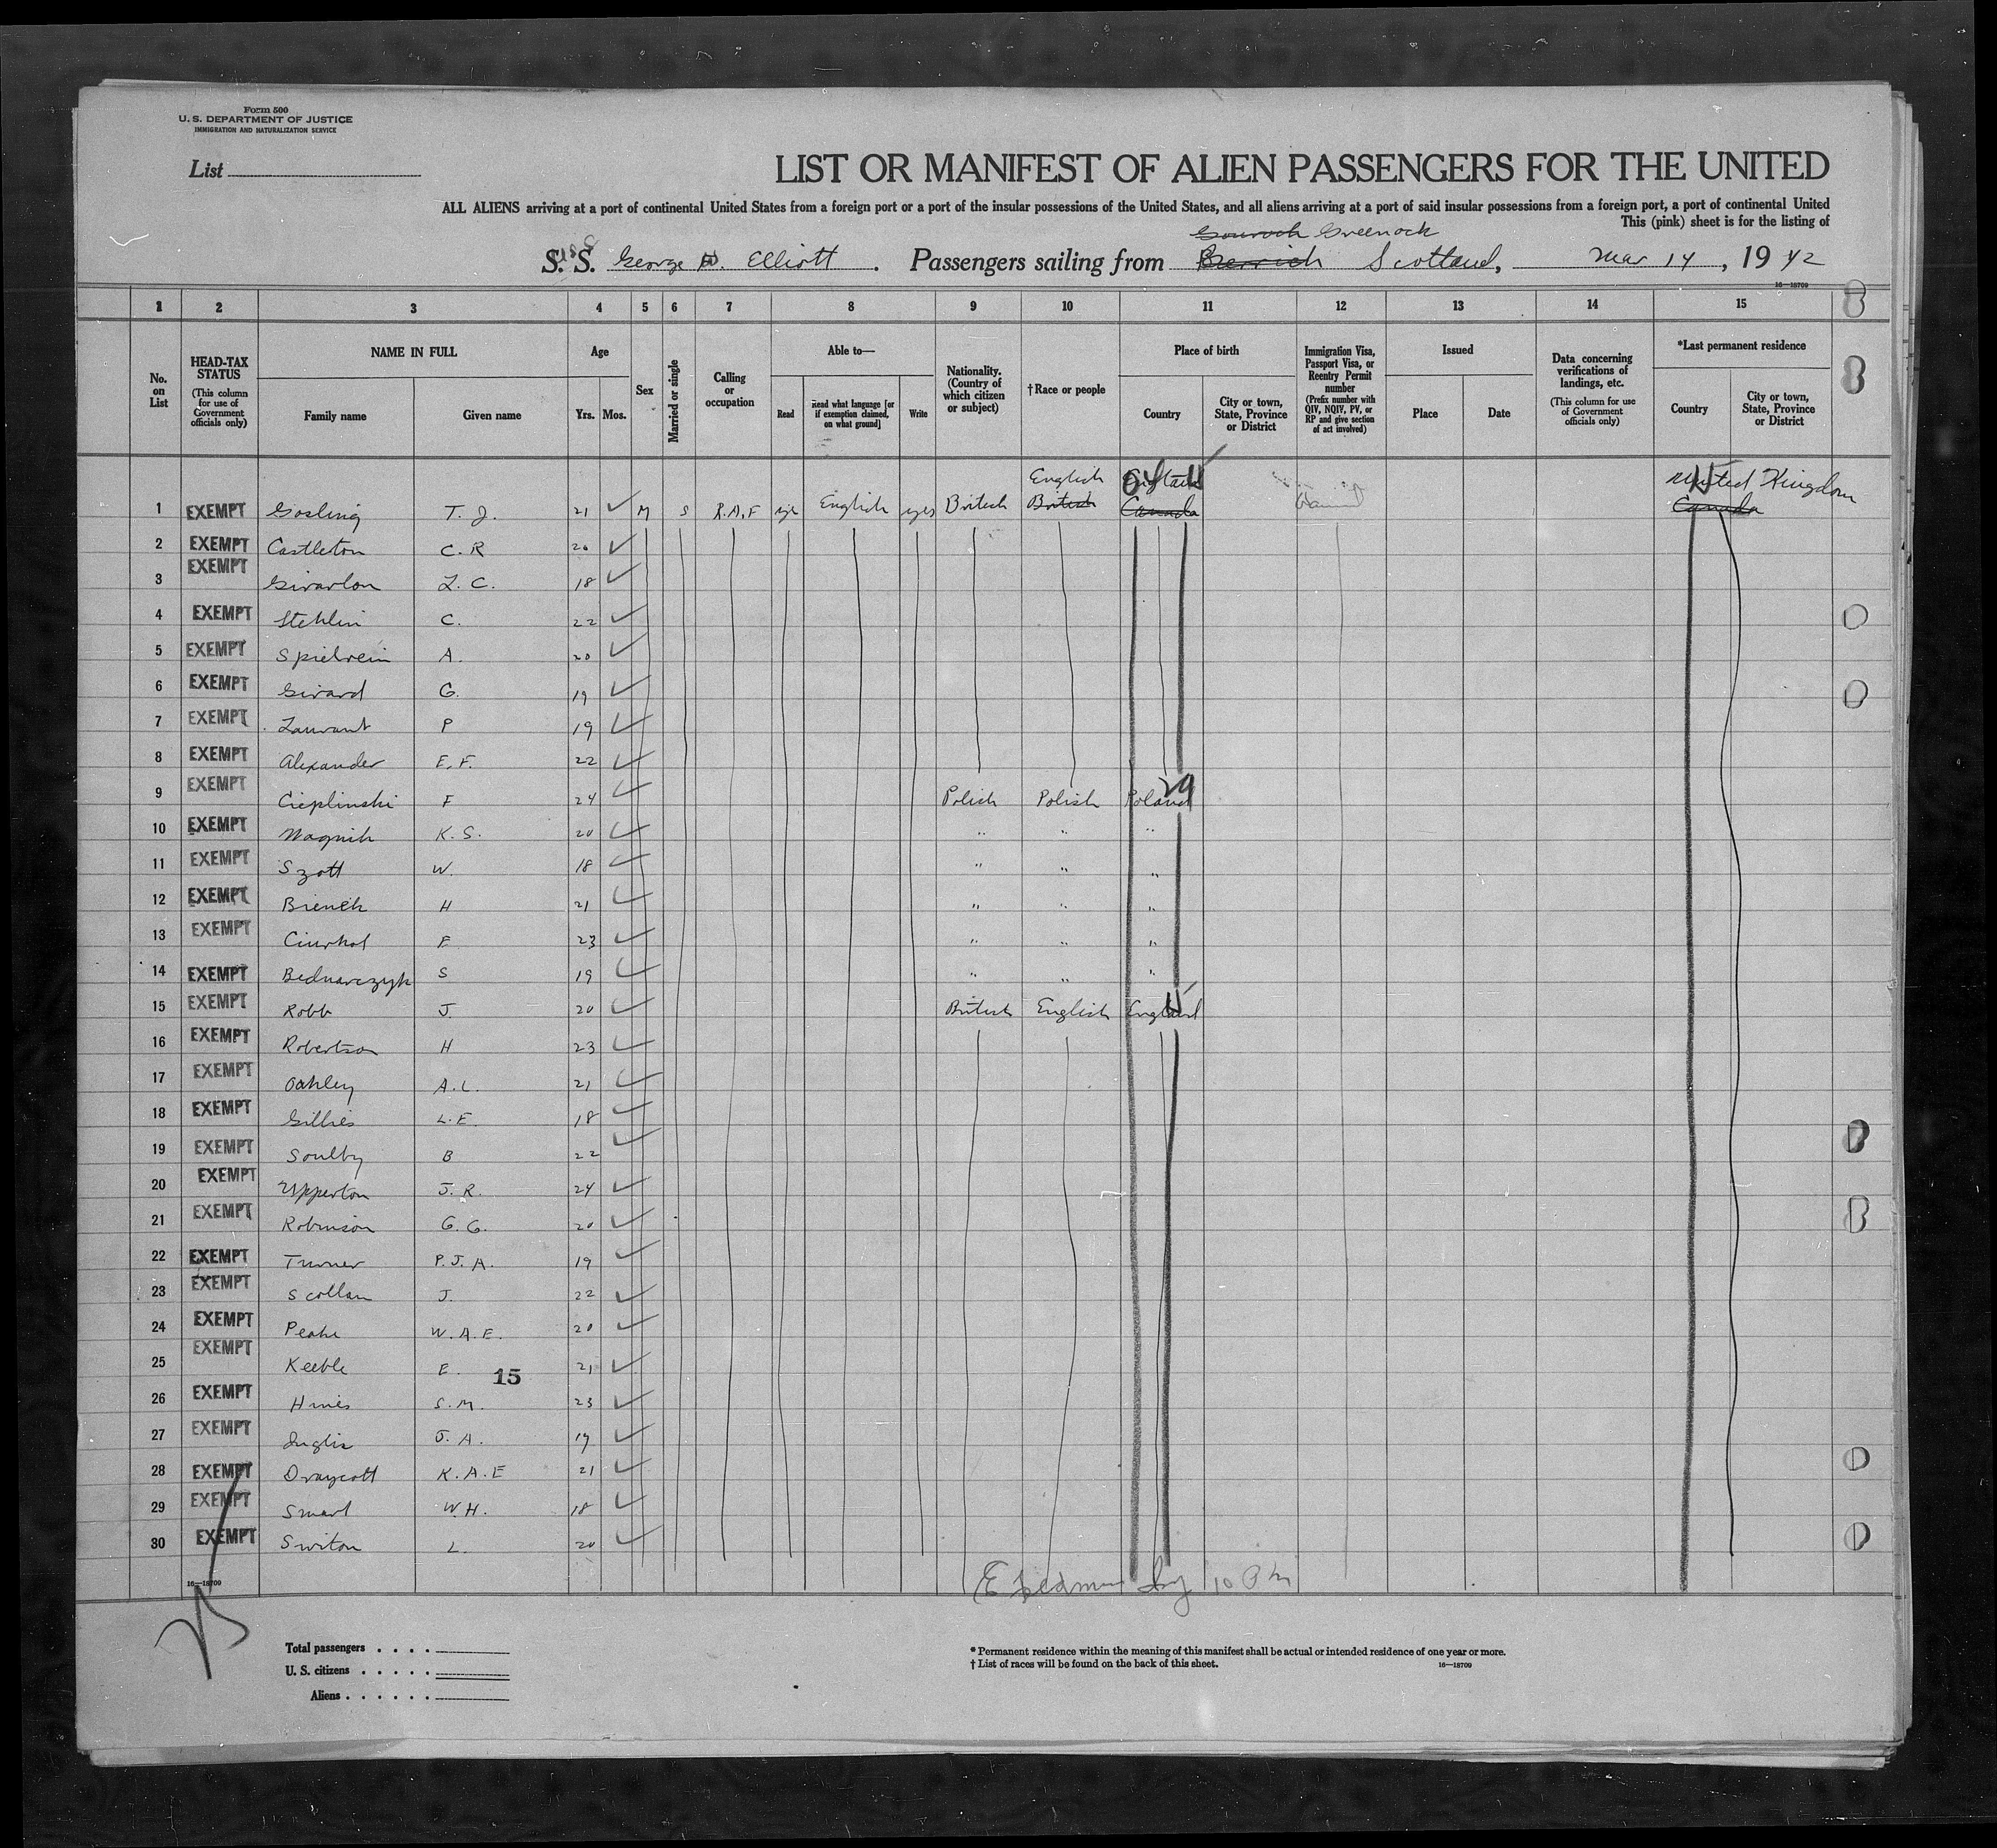 Form 500
U. S. DEPARTMENT OF JUSTICE
IMMIGRATION AND NATURALIZATION SERVICE
List
LIST OR MANIFEST OF ALIEN PASSENGERS FOR THE UNITED
ALL ALIENS arriving at a port of continental United States from a foreign port or a port of the insular possessions of the United States, and all aliens arriving at a port of said insular possessions from a foreign port, a port of continental United
This (pink) sheet is for the listing of
Gourock Greenock
S. S. George Elliott. Passengers sailing from Scotland, Mar 14, 1942
16—18709
1 2 3 4 5 6 7 8 9 10 11 12 13 14 15
No. on List
HEAD-TAX STATUS (This column for use of Government officials only)
NAME IN FULL Family name Given name
Age Yrs. Mos.
Sex
Married or single
Calling or occupation
Able to— Read Read what language [or if exemption claimed, on what ground] Write
Nationality. (Country of which citizen or subject)
†Race or people
Place of birth Country City or town, State, Province or District
Immigration Visa, Passport Visa, or Reentry Permit number (Prefix number with QIV, NQIV, PV, or RP and give section of act involved)
Issued Place Date
Data concerning verifications of landings, etc. (This column for use of Government officials only)
*Last permanent residence Country City or town, State, Province or District
English England United Kingdom
1 EXEMPT Gosling T. J. 21 M S R.A.F yes English yes British British Canada Canada
2 EXEMPT Castleton C. R 20
3 EXEMPT Girardon L. C. 18
4 EXEMPT Stehlin C. 22
5 EXEMPT Spielrein A. 20
6 EXEMPT Girard G. 19
7 EXEMPT Laurant P 19
8 EXEMPT Alexander E. F. 22
9 EXEMPT Cieplinski F 24 Polish Polish Poland 29
10 EXEMPT K. S. 20 " " "
11 EXEMPT Szott W. 18 " " "
12 EXEMPT H 21 " " "
13 EXEMPT F 23 " " "
14 EXEMPT Bednarczyk S 19 " " "
15 EXEMPT Robb J. 20 British English England
16 EXEMPT Robertson H 23
17 EXEMPT Oakley A. L. 21
18 EXEMPT Gillies L. E. 18
19 EXEMPT Soulby B 22
20 EXEMPT Upperton J. R. 24
21 EXEMPT Robinson G. G. 20
22 EXEMPT Turner P. J. A. 19
23 EXEMPT Scollan J. 22
24 EXEMPT Peake W. A. E. 20
25 EXEMPT Keeble E. 15 21
26 EXEMPT Hines S. M. 23
27 EXEMPT Inglis J. A. 19
28 EXEMPT Draycott K. A. E 21
29 EXEMPT Smart W. H. 18
30 EXEMPT Switon L. 20
16—18709
10 P m
Total passengers
U. S. citizens
Aliens
* Permanent residence within the meaning of this manifest shall be actual or intended residence of one year or more.
† List of races will be found on the back of this sheet. 16—18709